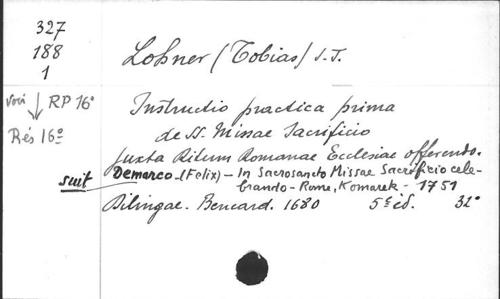 327
188
1
voir RP 16º
Rés 16º
Lohner (Tobias) S.J.
Instructio practica prima
de SS. Missae Sacrificio
juxta Ritum Romanae Ecclesiae offerendo.
suit Demarco (Felix) - In Sacrosancto Missae Sacrificio cele-
brando - Rome, Komarek - 1751
Dilingae. Bencard. 1680 5e éd. 32º